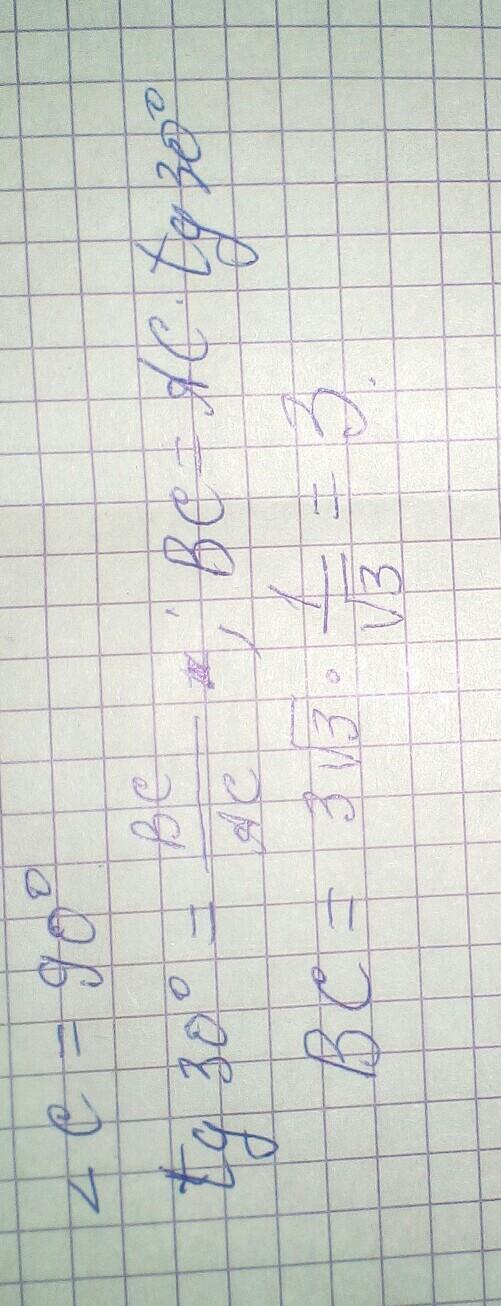 ∠C = 90°
tg 30° = BC/AC ; BC = AC · tg 30°
BC = 3√3 · 1/√3 = 3.